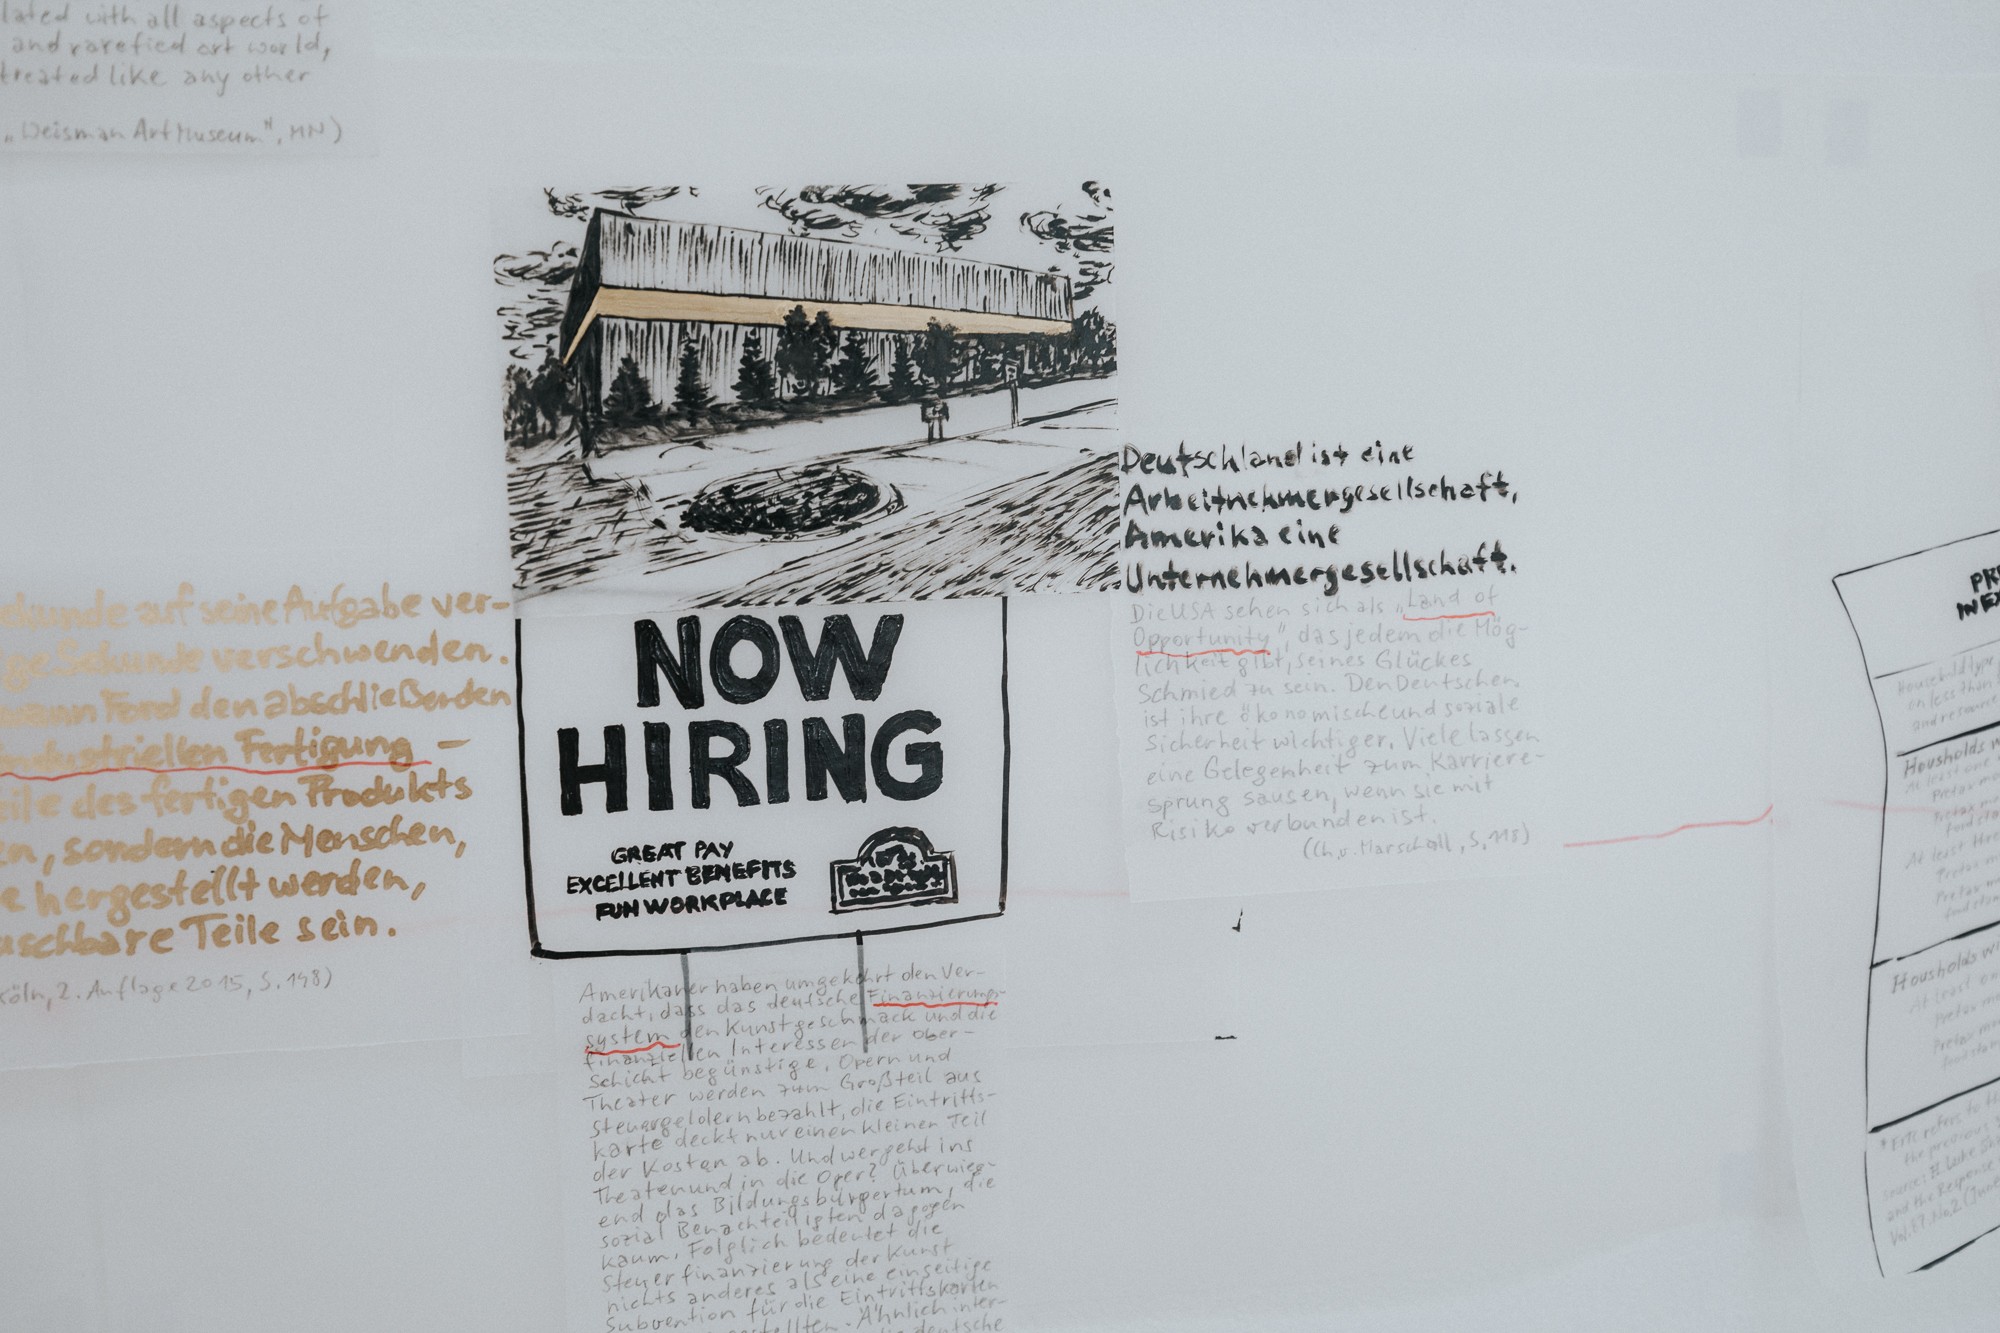 lated with all aspects of
and rarefied art world,
treated like any other
„Weisman Art Museum", MN)
ekunde auf seine Aufgabe ver-
ige Sekunde verschwenden.
mann Ford den abschließenden
industriellen Fertigung –
eile des fertigen Produkts
en, sondern die Menschen,
e hergestellt werden,
uschbare Teile sein.
Köln, 2. Auflage 2015, S. 148)
NOW
HIRING
GREAT PAY
EXCELLENT BENEFITS
FUN WORKPLACE
Amerikaner haben umgekehrt den Ver-
dacht, dass das deutsche Finanzierungs-
system den Kunstgeschmack und die
finanziellen Interessen der Ober-
schicht begünstige. Opern und
Theater werden zum Großteil aus
Steuergeldern bezahlt, die Eintritts-
karte deckt nur einen kleinen Teil
der Kosten ab. Und wer geht ins
Theater und in die Oper? Überwieg-
end das Bildungsbürgertum, die
sozial Benachteiligten dagegen
kaum. Folglich bedeutet die
Steuerfinanzierung der Kunst
nichts anderes als eine einseitige
Subvention für die Eintrittskarten
Ähnlich inter-
deutsche
Deutschland ist eine
Arbeitnehmergesellschaft,
Amerika eine
Unternehmergesellschaft.
Die USA sehen sich als „Land of
Opportunity", das jedem die Mög-
lichkeit gibt, seines Glückes
Schmied zu sein. Den Deutschen
ist ihre ökonomische und soziale
Sicherheit wichtiger. Viele lassen
eine Gelegenheit zum Karriere-
sprung sausen, wenn sie mit
Risiko verbunden ist.
(Ch. v. Marschall, S. 118)
PR
IN EX
Household type
on less than
and resource
Housholds w
At least one
Pretax mo
Pretax mo
food stam
At least thre
Pretax mo
Pretax mo
food stam
Housholds wi
At least on
Pretax mo
Pretax mo
* EITC refers to th
the previous
source: H. Luke Sh
and the Response
Vol. 87. No. 2 (June